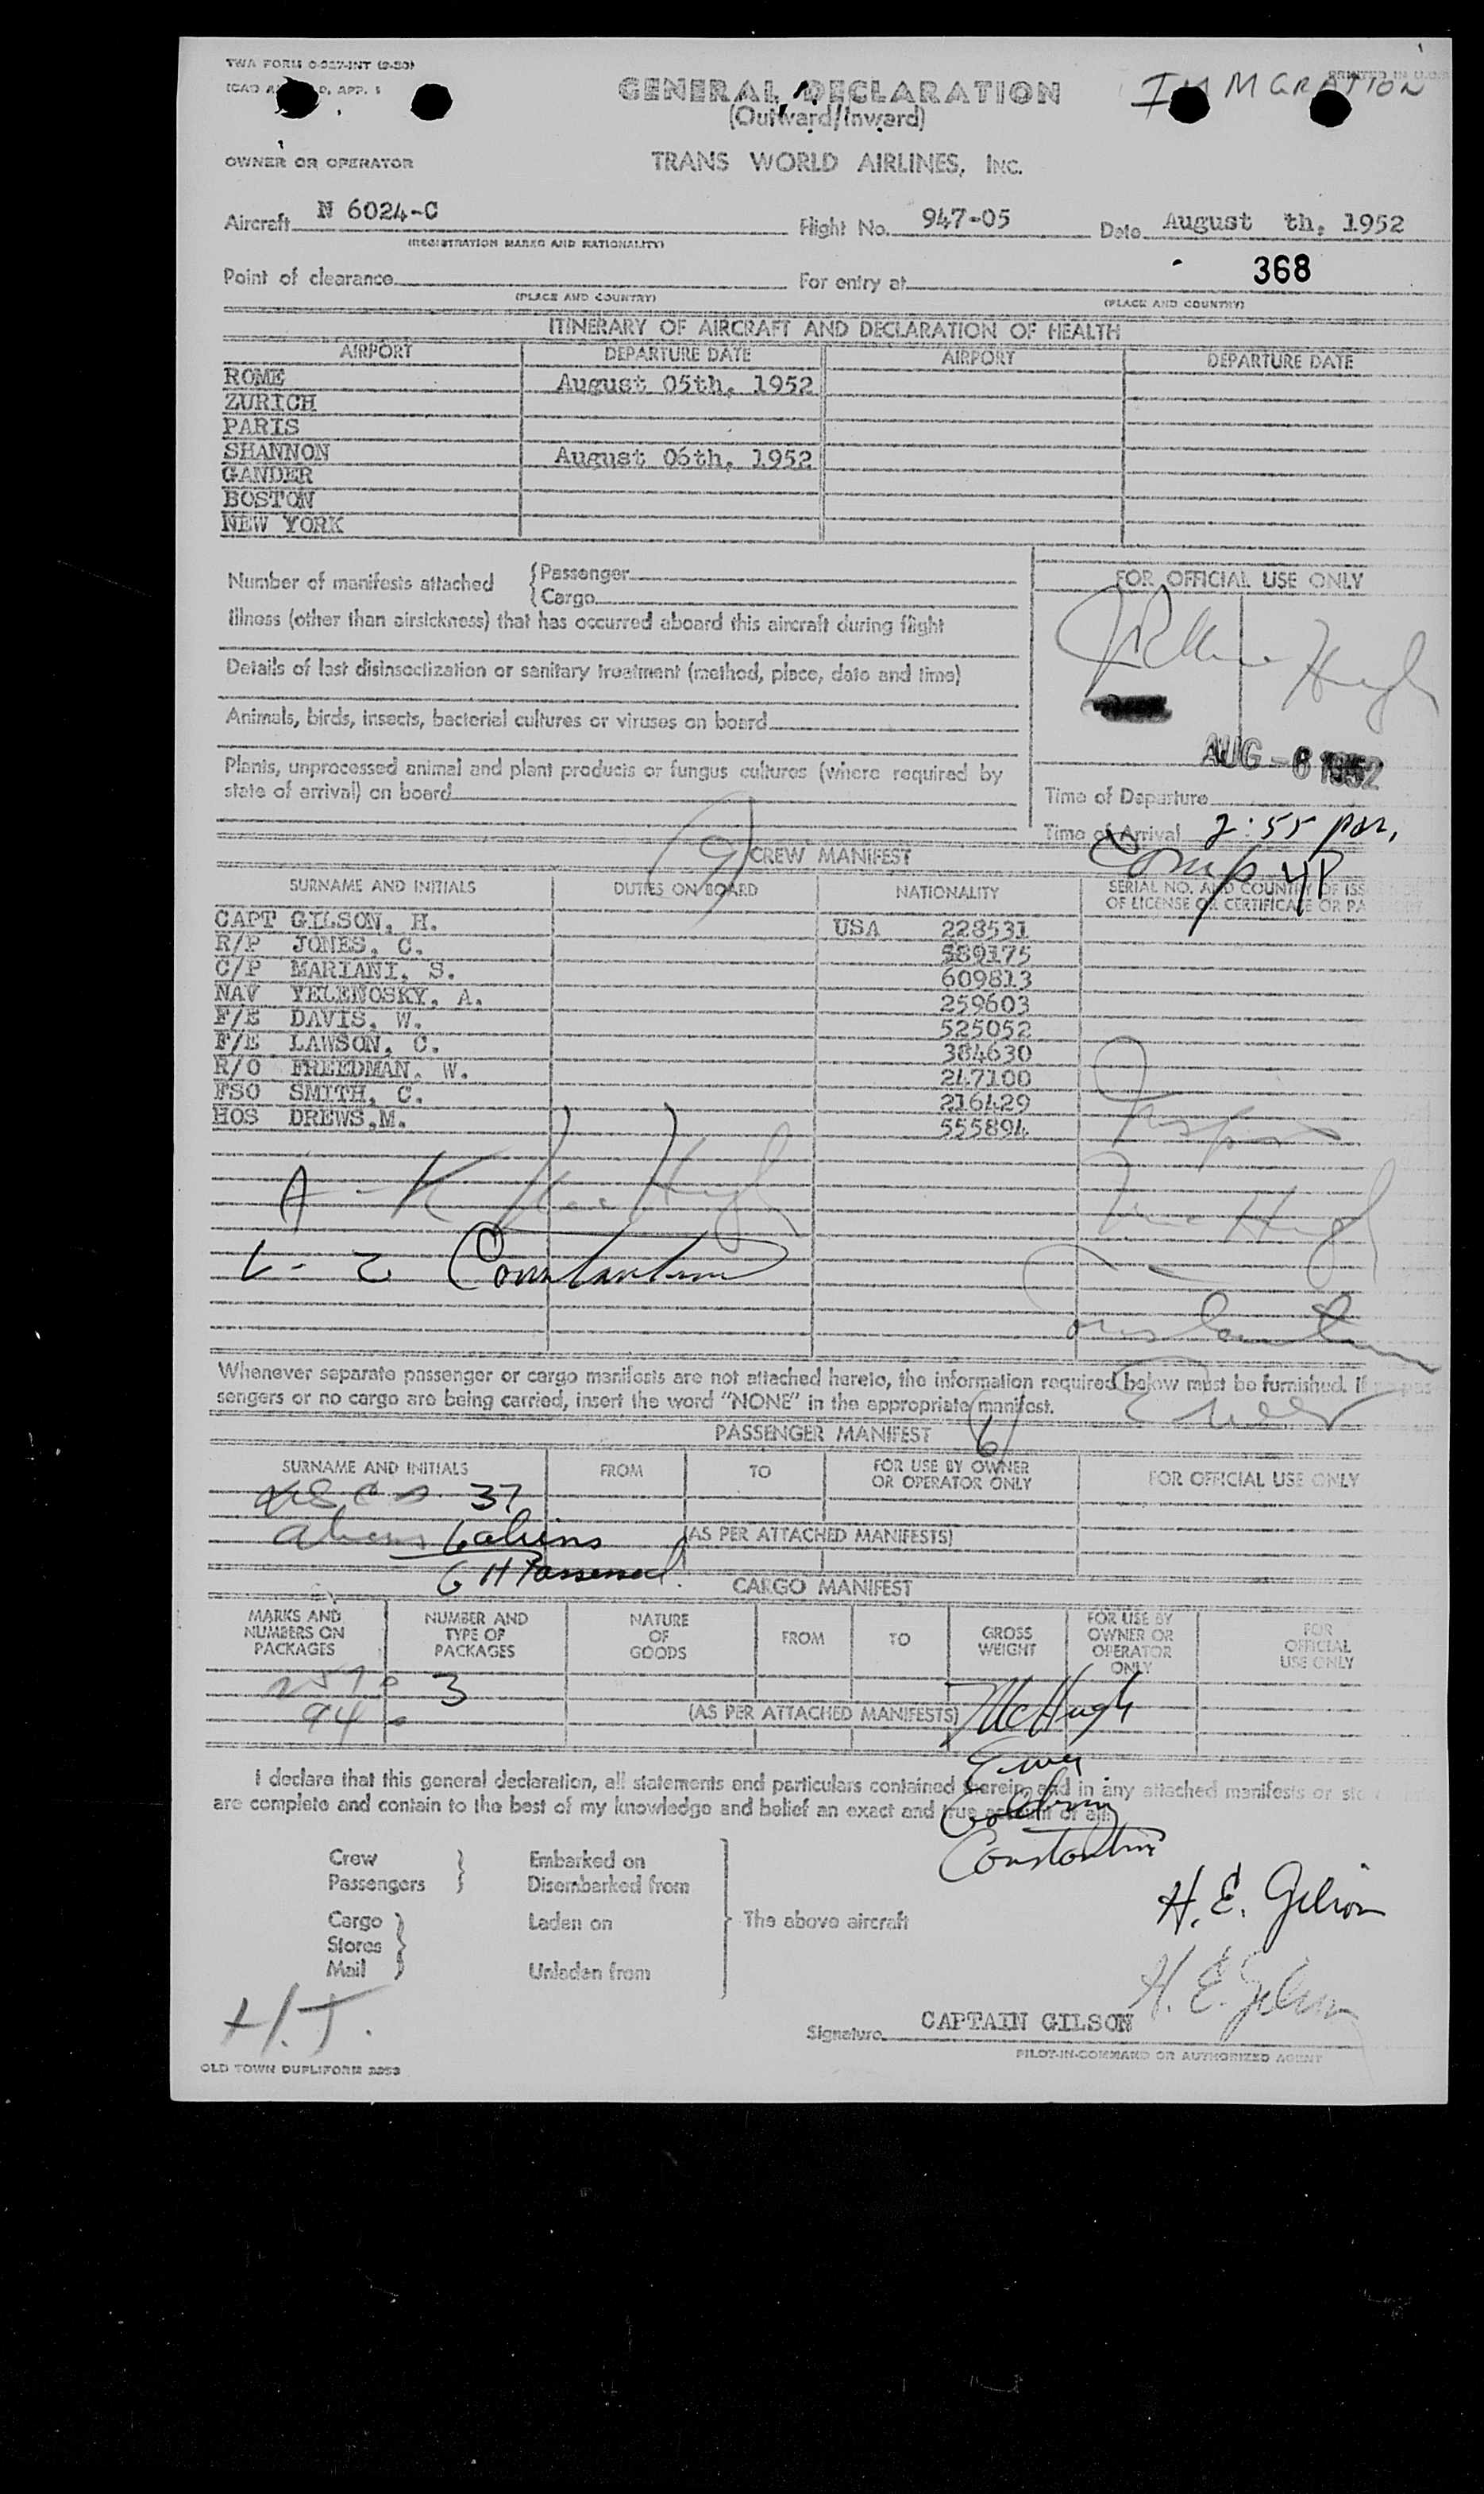 TWA FORM 0-927-INT (9-50)
PRINTED IN U.S.
ICAO D, APP. 1
GENERAL DECLARATION
IMMGRATION
(Outward/Inward)
OWNER OR OPERATOR
TRANS WORLD AIRLINES, INC.
Aircraft N 6024-C Flight No. 947-05 Date August th, 1952
(REGISTRATION MARKS AND NATIONALITY)
368
Point of clearance For entry at
(PLACE AND COUNTRY) (PLACE AND COUNTRY)
ITINERARY OF AIRCRAFT AND DECLARATION OF HEALTH
AIRPORT DEPARTURE DATE AIRPORT DEPARTURE DATE
ROME August 05th, 1952
ZURICH
PARIS
SHANNON August 06th, 1952
GANDER
BOSTON
NEW YORK
Number of manifests attached { Passenger
{ Cargo
FOR OFFICIAL USE ONLY
Illness (other than airsickness) that has occurred aboard this aircraft during flight
Details of last disinsectization or sanitary treatment (method, place, date and time)
Animals, birds, insects, bacterial cultures or viruses on board
AUG -6 1952
Plants, unprocessed animal and plant products or fungus cultures (where required by
state of arrival) on board
Time of Departure
Time of Arrival 2:55 pm.
(9) CREW MANIFEST
SURNAME AND INITIALS DUTIES ON BOARD NATIONALITY SERIAL NO. AND COUNTRY OF ISS
OF LICENSE OR CERTIFICATE OR PA
CAPT GILSON, H. USA 228531
R/P JONES, C. 589175
C/P MARIANI, S. 609813
NAV YELENOSKY, A. 259603
F/E DAVIS, W. 525052
F/E LAWSON, C. 384630
R/O FREEDMAN, W. 247100
FSO SMITH, C. 216429
HOS DREWS,M. 555894
A - K McHugh
L - Z Constantine
Whenever separate passenger or cargo manifests are not attached hereto, the information required below must be furnished. If no pas
sengers or no cargo are being carried, insert the word "NONE" in the appropriate manifest.
PASSENGER MANIFEST (6)
SURNAME AND INITIALS FROM TO FOR USE BY OWNER
OR OPERATOR ONLY FOR OFFICIAL USE ONLY
37
aliens 6 aliens (AS PER ATTACHED MANIFESTS)
CARGO MANIFEST
MARKS AND
NUMBERS ON
PACKAGES
NUMBER AND
TYPE OF
PACKAGES
NATURE
OF
GOODS
FROM TO
GROSS
WEIGHT
FOR USE BY
OWNER OR
OPERATOR
ONLY
FOR
OFFICIAL
USE ONLY
3
94
(AS PER ATTACHED MANIFESTS) McHugh
I declare that this general declaration, all statements and particulars contained therein, and in any attached manifests or
are complete and contain to the best of my knowledge and belief an exact and true account of all:
Constantine
Crew } Embarked on
Passengers } Disembarked from
H. E. Gilson
Cargo } Laden on } The above aircraft
Stores }
Mail } Unladen from
H. E. Gilson
H.J.
Signature CAPTAIN GILSON
PILOT-IN-COMMAND OR AUTHORIZED AGENT
OLD TOWN DUPLIFORM 2953